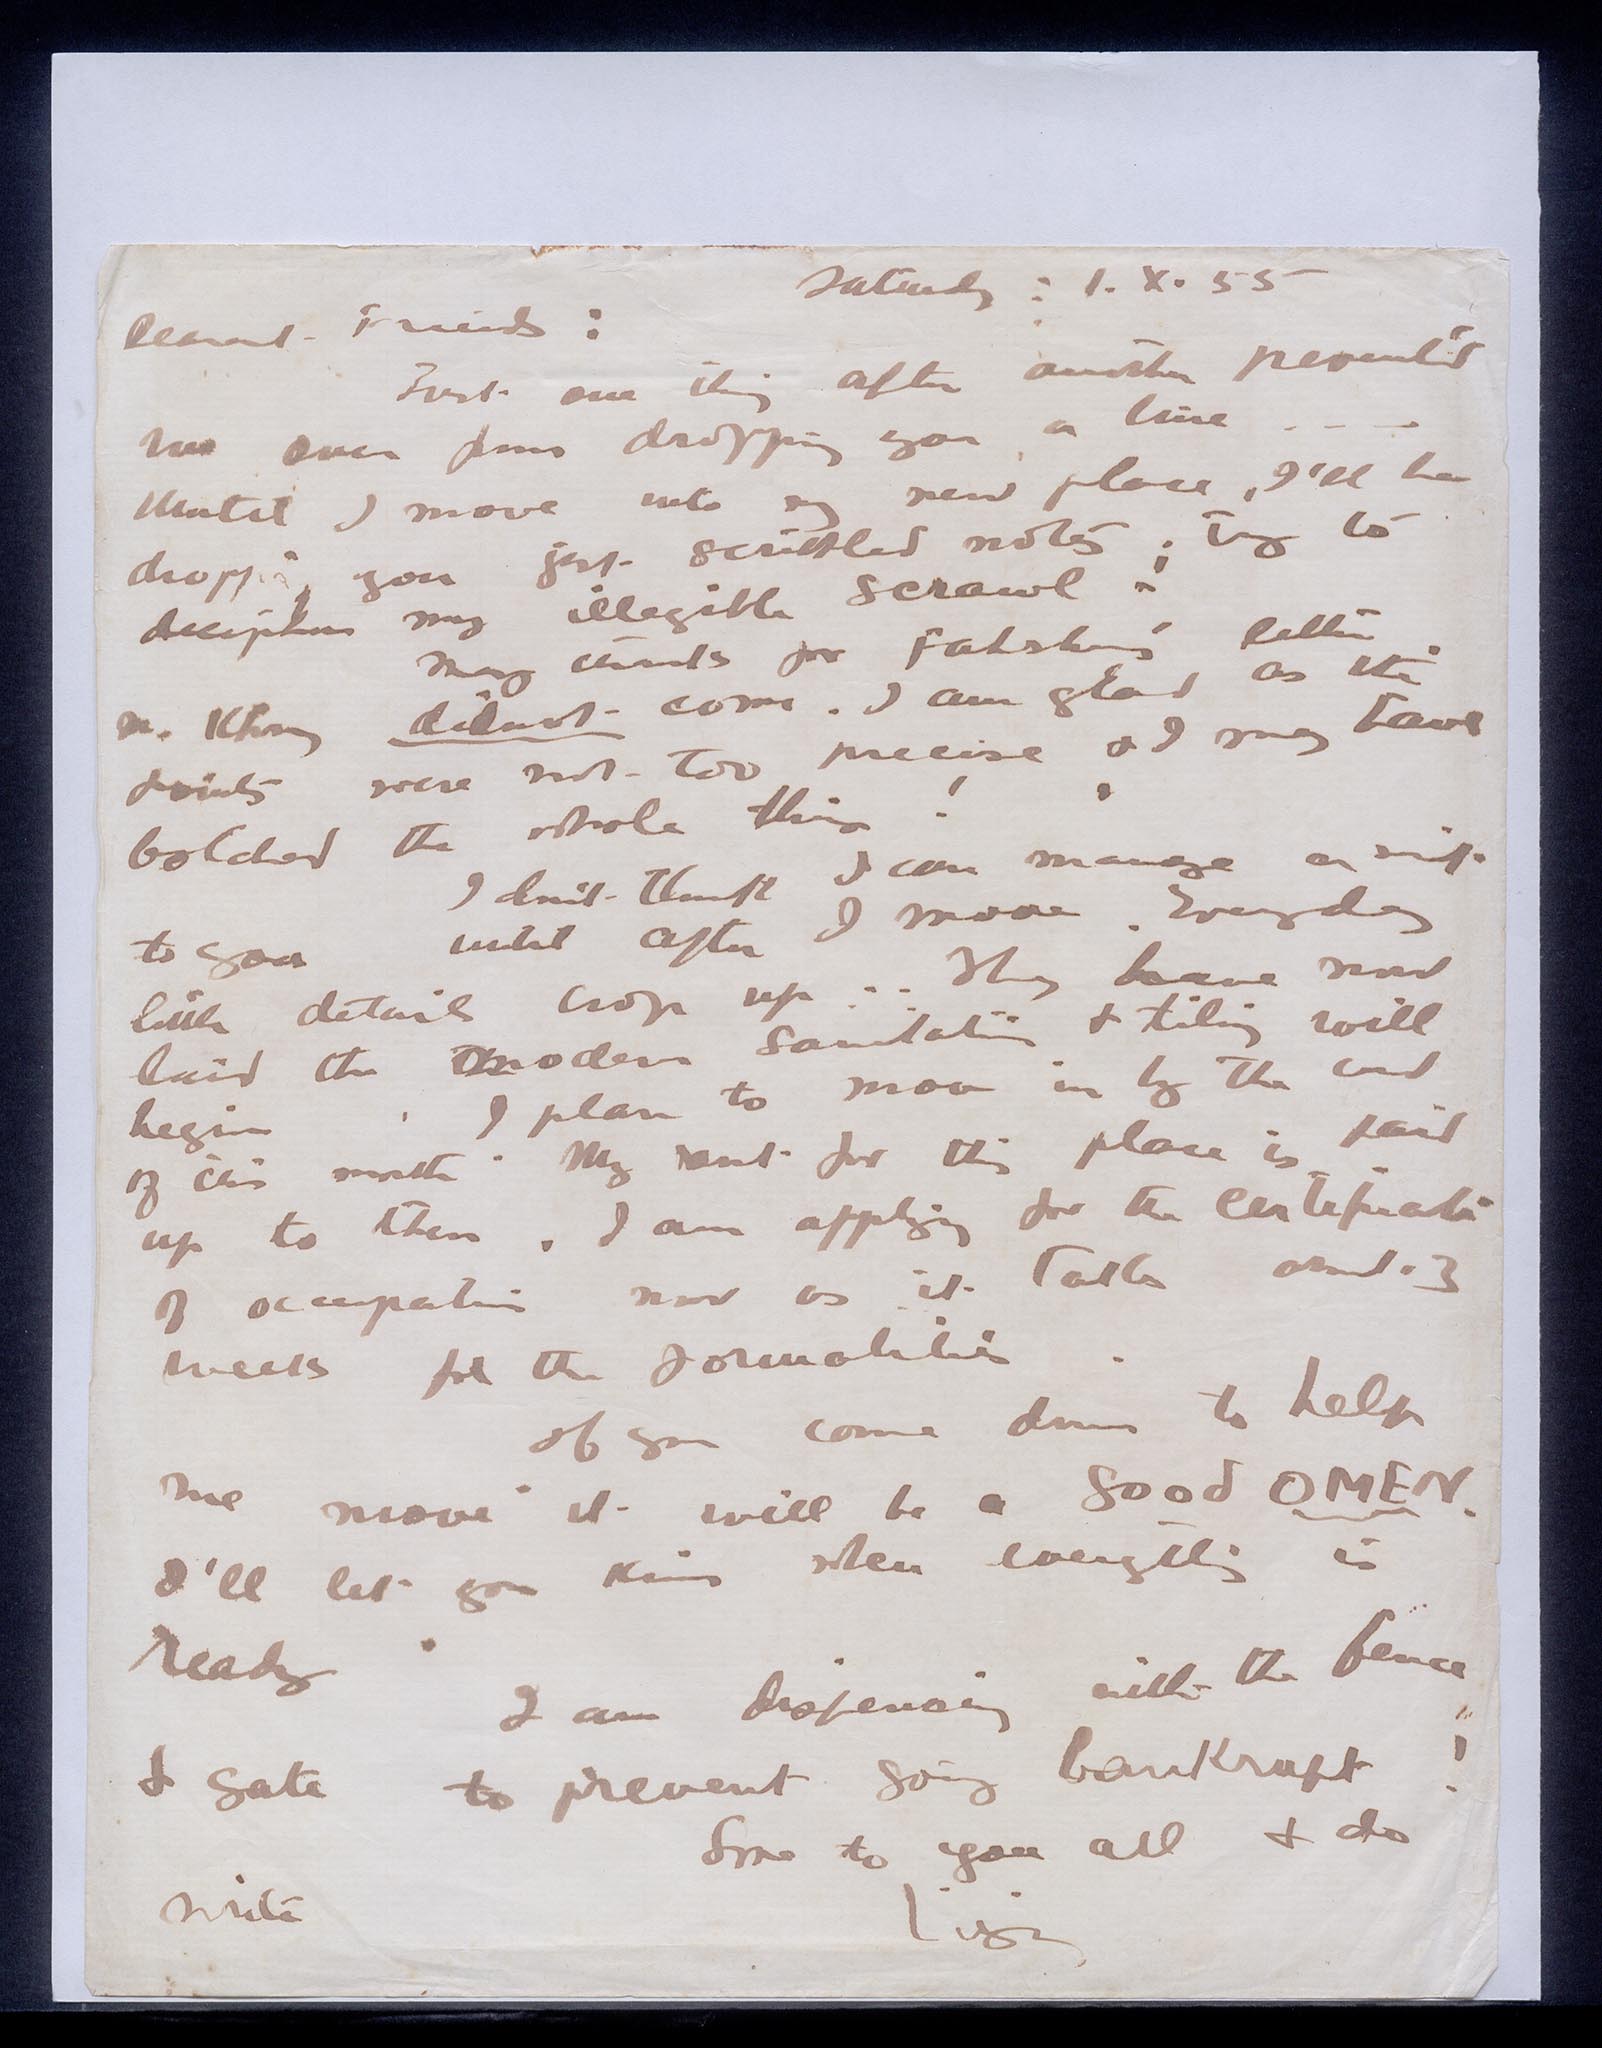 Saturday : 1. X. 55
Dearest Friends :
Just one thing after another prevent'd
me even from dropping you a line ....
Untill I move into my new place, I'll be
dropping you just scribbled notes ; try to
decipher my illegible scrawl !
Many thanks for letter.
M. Khony didnot come. I am glad as the
points were not too precise & I may have
botched the whole thing !
I don't think I can manage a visit
to you until after I move. Everyday
little details crop up ... They have now
laid the modern sanitation & tiling will
begin. I plan to move in by the end
of this month. My rent for this place is paid
up to then. I am applying for the certificate
of occupation now as it takes about 3
weeks for the formalities.
If you come down to help
me move it will be a good OMEN.
I'll let you know when everything is
ready.
I am dispensing with the fence
& gate to prevent going bankrupt !
Love to you all & do
write